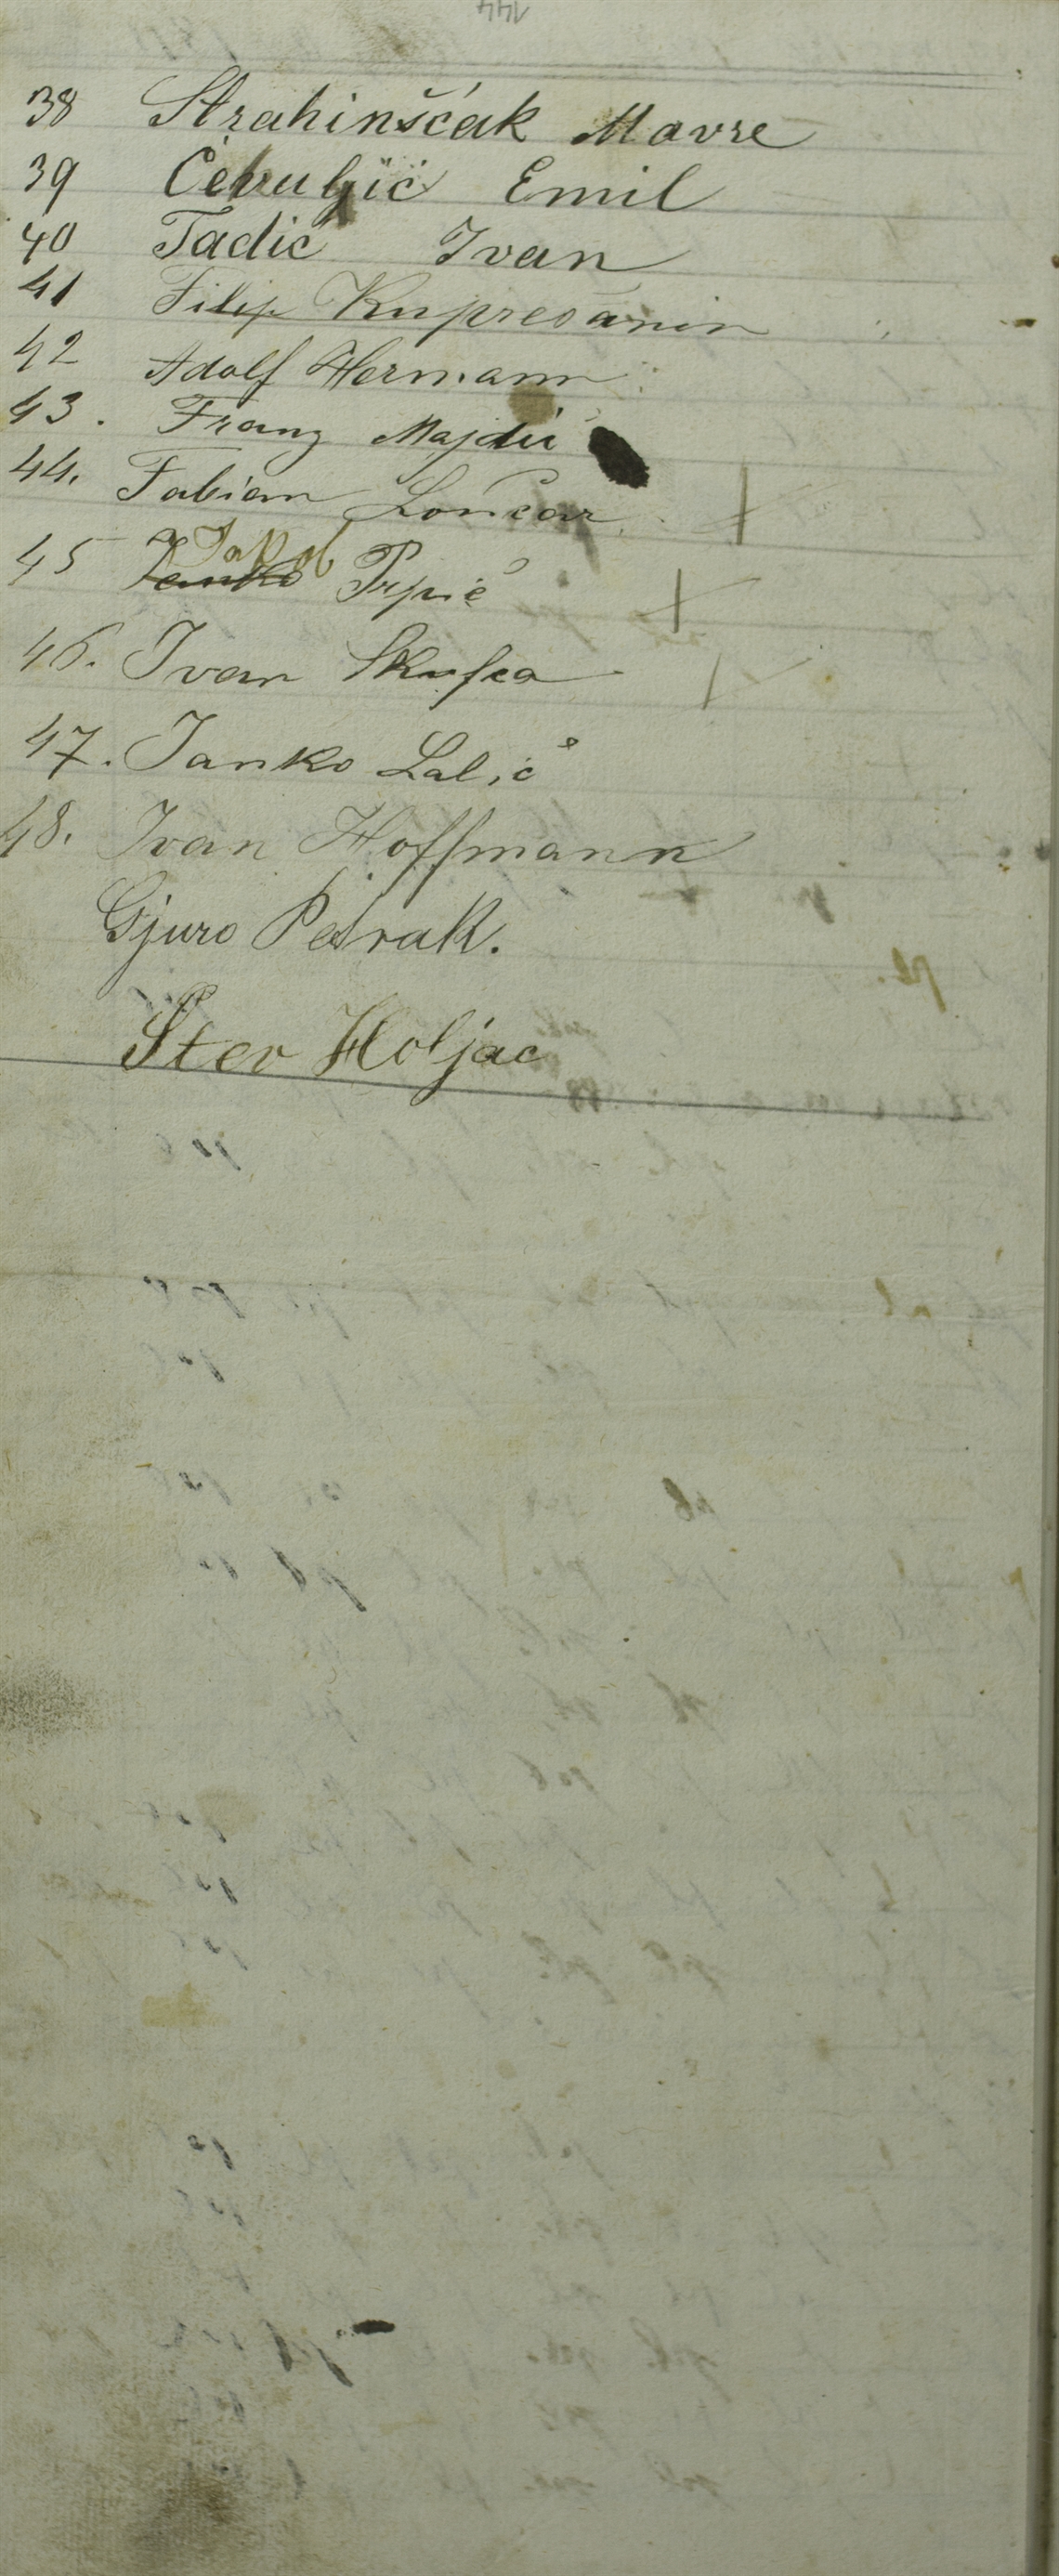 144
38 Strahinšćak Mavre
39 Cebuljić Emil
40 Tadić Ivan
41 Filip Kuprešanin
42 Adolf Hermann
43. Franz Majdić
44. Fabian Lončar
45 Janko Jakob Prpić
46. Ivan Skufca
47. Janko Lalić
48. Ivan Hoffmann
Gjuro Petrak.
Stev Holjac